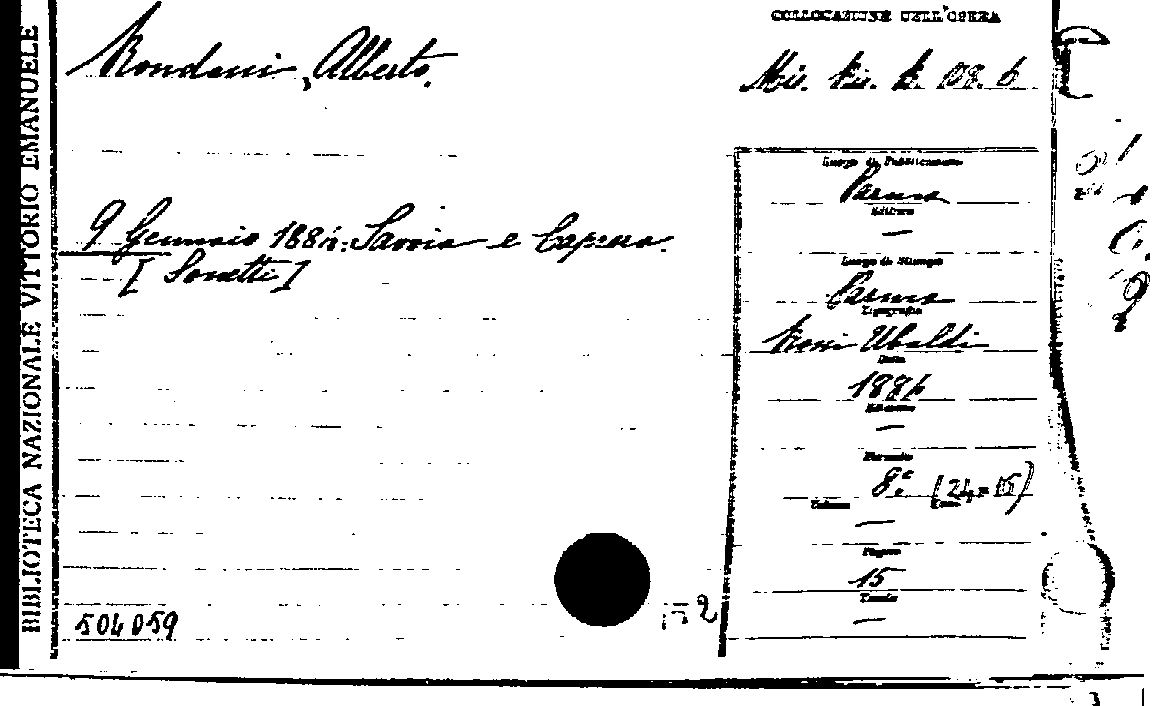 BIBLIOTECA NAZIONALE VITTORIO EMANUELE
COLLOCAZIONE DELL'OPERA
Rondani, Alberto.
Mis. Ris. B. 108. 6
9 Gennaio 1884: Savoia e Caprera.
[Sonetti]
Luogo di Pubblicazione
Parma
Editore
—
Luogo di Stampa
Parma
Tipografia
Rossi Ubaldi
Data
1884
Edizione
—
Formato
8.° (24 = 15)
Volume
—
Pagine
15
Tavole
—
504059
2